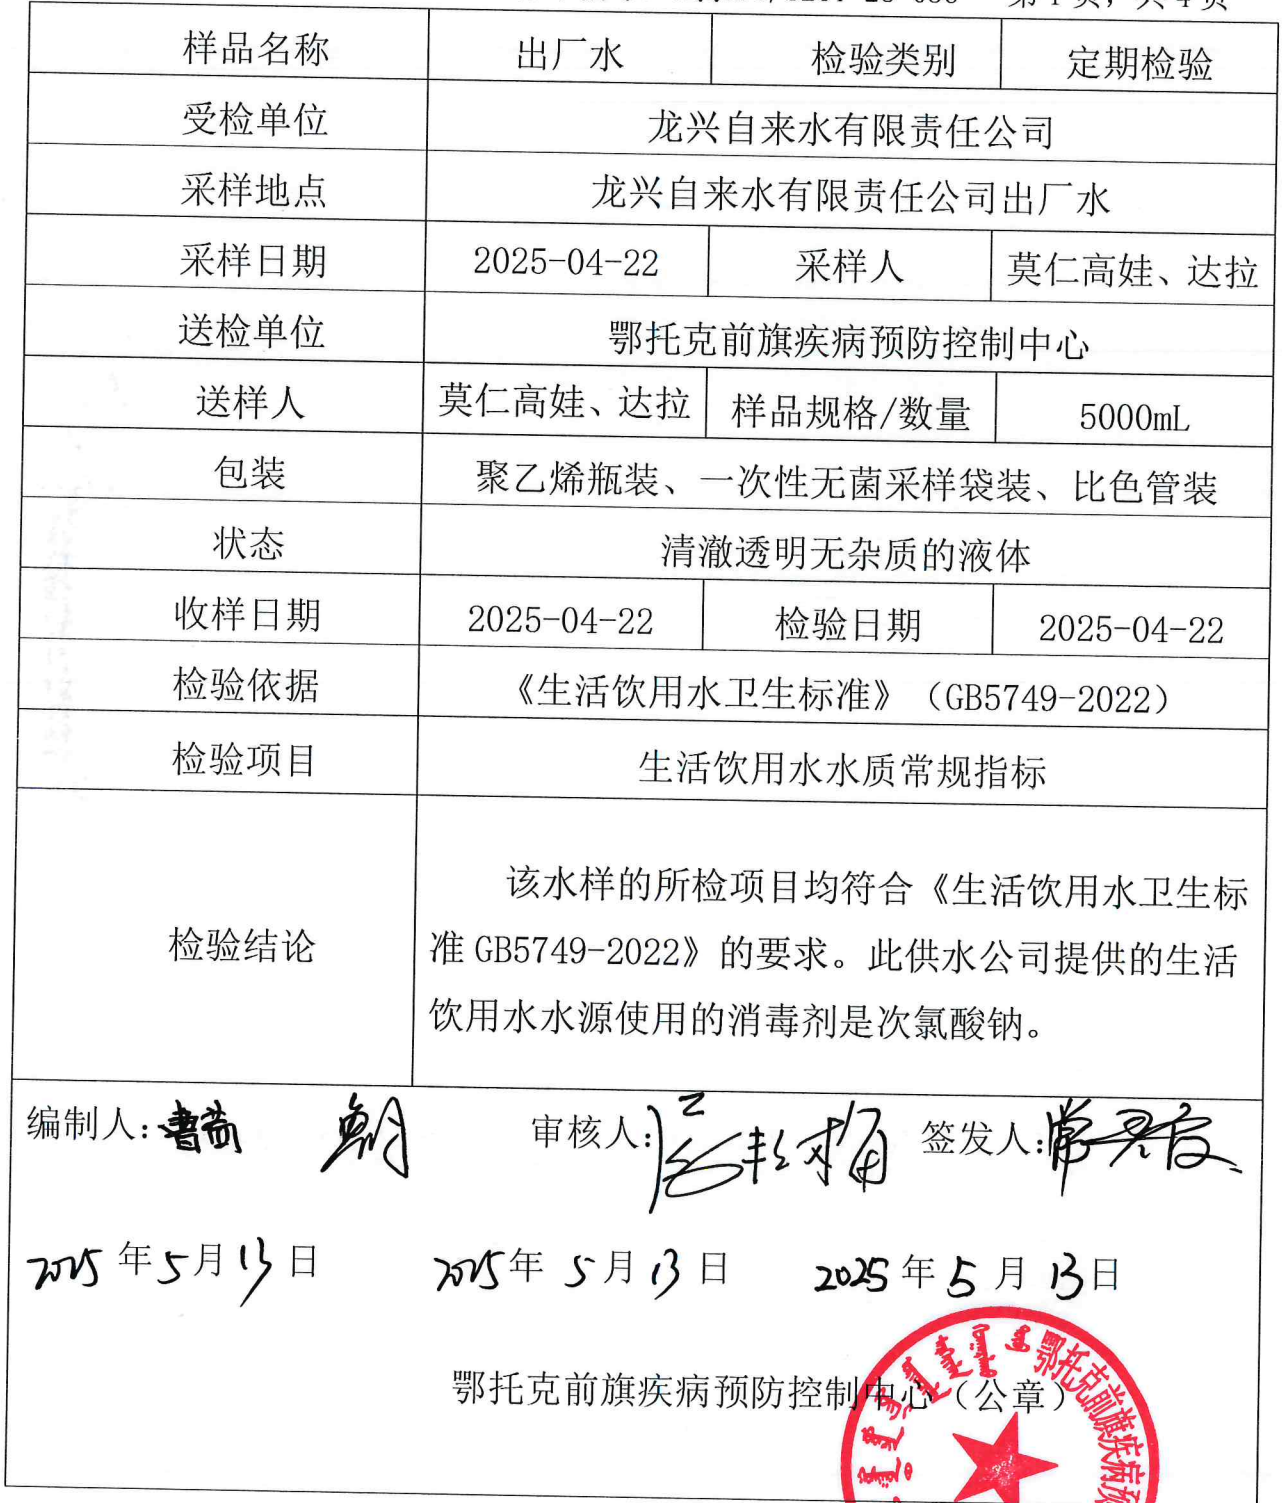 第1页，共4页
样品名称 出厂水 检验类别 定期检验
受检单位 龙兴自来水有限责任公司
采样地点 龙兴自来水有限责任公司出厂水
采样日期 2025-04-22 采样人 莫仁高娃、达拉
送检单位 鄂托克前旗疾病预防控制中心
送样人 莫仁高娃、达拉 样品规格/数量 5000mL
包装 聚乙烯瓶装、一次性无菌采样袋装、比色管装
状态 清澈透明无杂质的液体
收样日期 2025-04-22 检验日期 2025-04-22
检验依据 《生活饮用水卫生标准》（GB5749-2022）
检验项目 生活饮用水水质常规指标
该水样的所检项目均符合《生活饮用水卫生标
检验结论 准 GB5749-2022》的要求。此供水公司提供的生活
饮用水水源使用的消毒剂是次氯酸钠。
编制人: 审核人: 签发人:
2025 年 5 月 13 日 2025 年 5 月 13 日 2025 年 5 月 13 日
鄂托克前旗疾病预防控制中心（公章）
鄂托克前旗疾病预